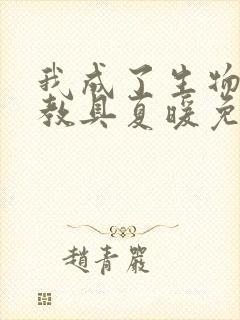 我成了生物
教具夏暖免
趙青嚴